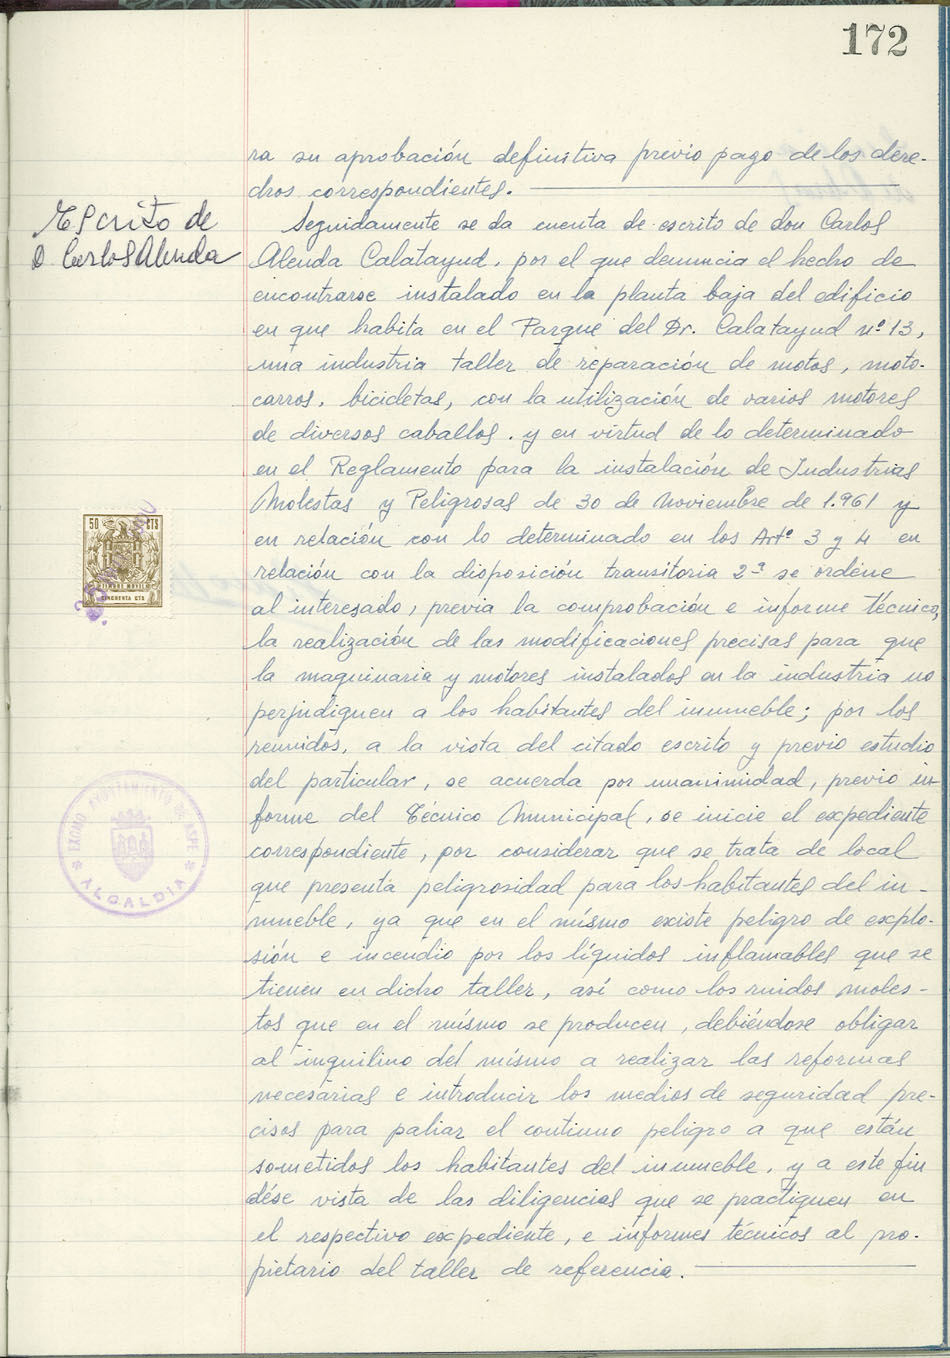 172
ra su aprobación definitiva previo pago de los dere-
chos correspondientes.
Escrito de
D. Carlos Alenda
Seguidamente se da cuenta de escrito de don Carlos
Alenda Calatayud, por el que denuncia el hecho de
encontrarse instalado en la planta baja del edificio
en que habita en el Parque del Dr. Calatayud nº 13,
una industria taller de reparación de motos, moto-
carros, bicicletas, con la utilización de varios motores
de diversos caballos, y en virtud de lo determinado
en el Reglamento para la instalación de Industrias
Molestas y Peligrosas de 30 de Noviembre de 1.961 y
en relación con lo determinado en los Artº 3 y 4 en
relación con la disposición transitoria 2ª se ordene
al interesado, previa la comprobación e informe técnico,
la realización de las modificaciones precisas para que
la maquinaria y motores instalados en la industria no
perjudiquen a los habitantes del inmueble; por los
reunidos, a la vista del citado escrito y previo estudio
del particular, se acuerda por unanimidad, previo in-
forme del Técnico Municipal, se inicie el expediente
correspondiente, por considerar que se trata de local
que presenta peligrosidad para los habitantes del in-
mueble, ya que en el mísmo existe peligro de explo-
sión e incendio por los líquidos inflamables que se
tienen en dicho taller, así como los ruidos moles-
tos que en el mísmo se producen, debiéndose obligar
al inquilino del mísmo a realizar las reformas
necesarias e introducir los medios de seguridad pre-
cisos para paliar el contínuo peligro a que están
sometidos los habitantes del inmueble, y a este fin
dése vista de las diligencias que se practiquen en
el respectivo expediente, e informes técnicos al pro-
pietario del taller de referencia.
50 CTS
TIMBRE MOVIL
CINCUENTA CTS
EXCMO. AYUNTAMIENTO DE ASPE
* ALCALDIA *